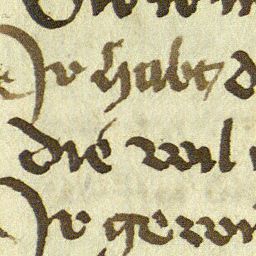 Ir habt d
die wil
Ir gewi